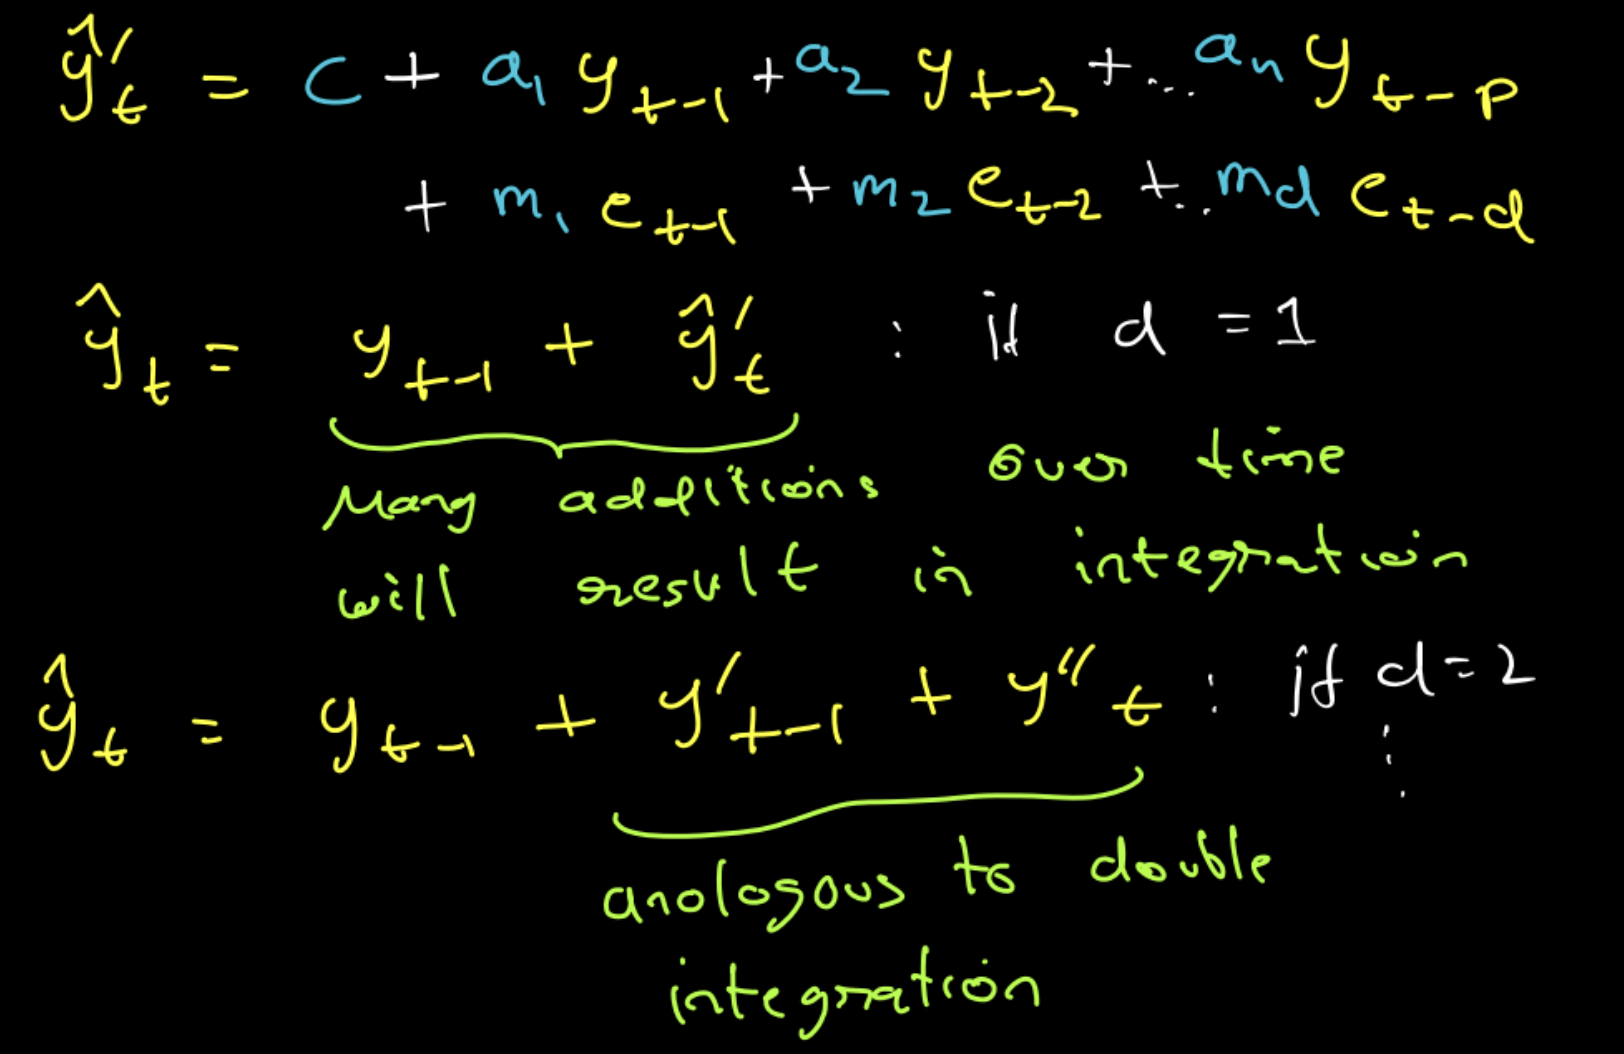 ŷ′t = c + a₁ yt-1 + a₂ yt-2 + ... an yt-p
+ m₁ et-1 + m₂ et-2 + .. md et-d
ŷt = yt-1 + ŷ′t : if d = 1
Many additions over time
will result in integration
ŷt = yt-1 + y′t-1 + y″t : if d = 2
⋮
anologous to double
integration